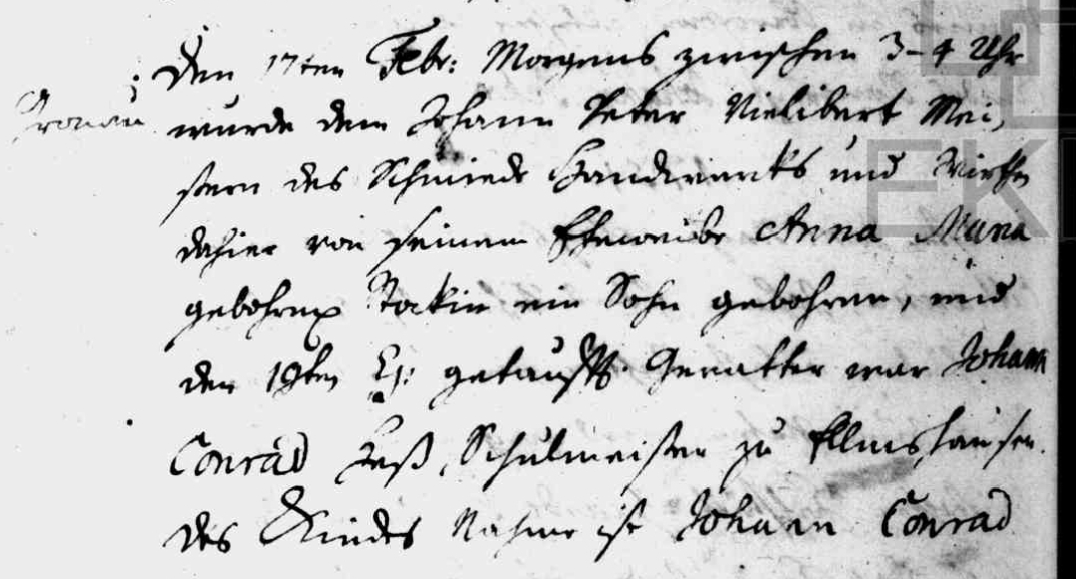 Gronau
den 17ten Febr: Morgens zwischen 3-4 Uhr
wurde dem Johann Peter Vielibert Mei,
stern des Schmiede Handwercks und Wirthn
dahier von seinem Eheweibe Anna Maria
gebohrne ein Sohn gebohren, und
den 19ten getaufft. Gevatter war Johann
Conrad Heß, Schulmeister zu Ellmshausen.
des Kindes Nahme ist Johann Conrad
EK